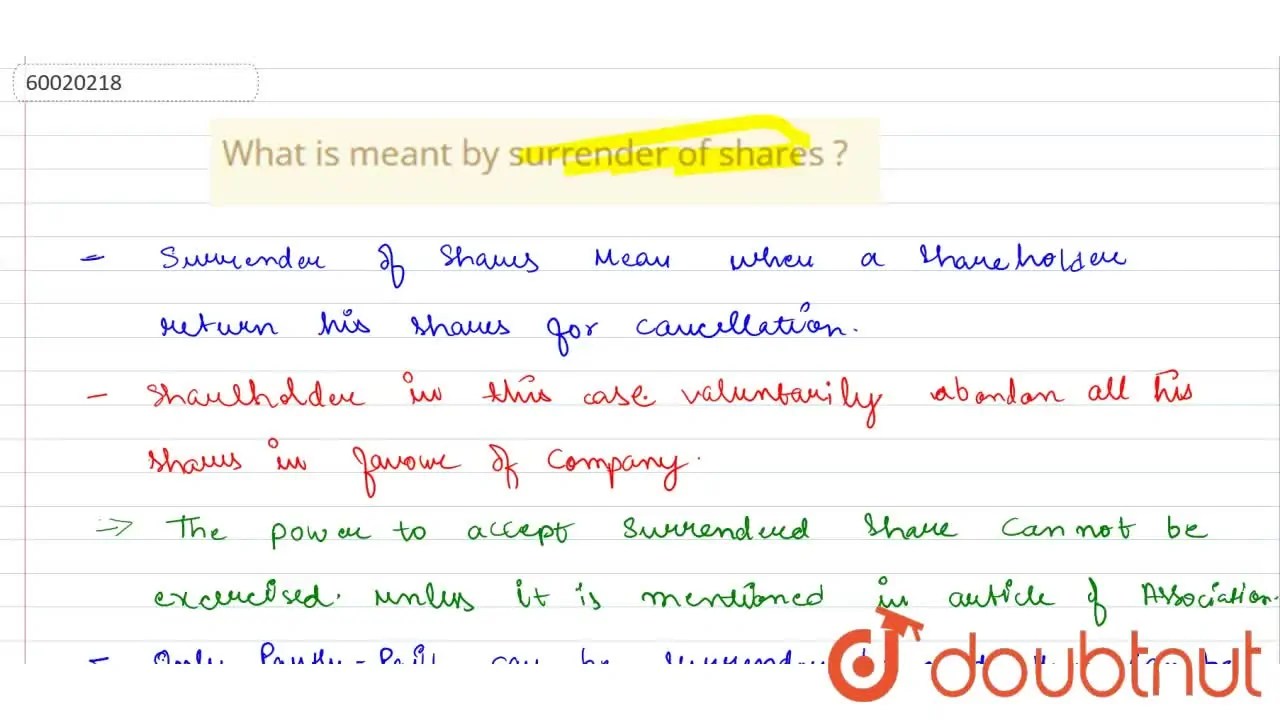 60020218
What is meant by surrender of shares ?
- Surrender of Shares Mean when a Shareholder
return his shares for cancellation.
- Shareholder in this case voluntarily abandon all his
shares in favour of Company.
=> The power to accept Surrendered Share Cannot be
excercised. unless it is mentioned in article of Association.
- Only Partly-Paid can be
doubtnut